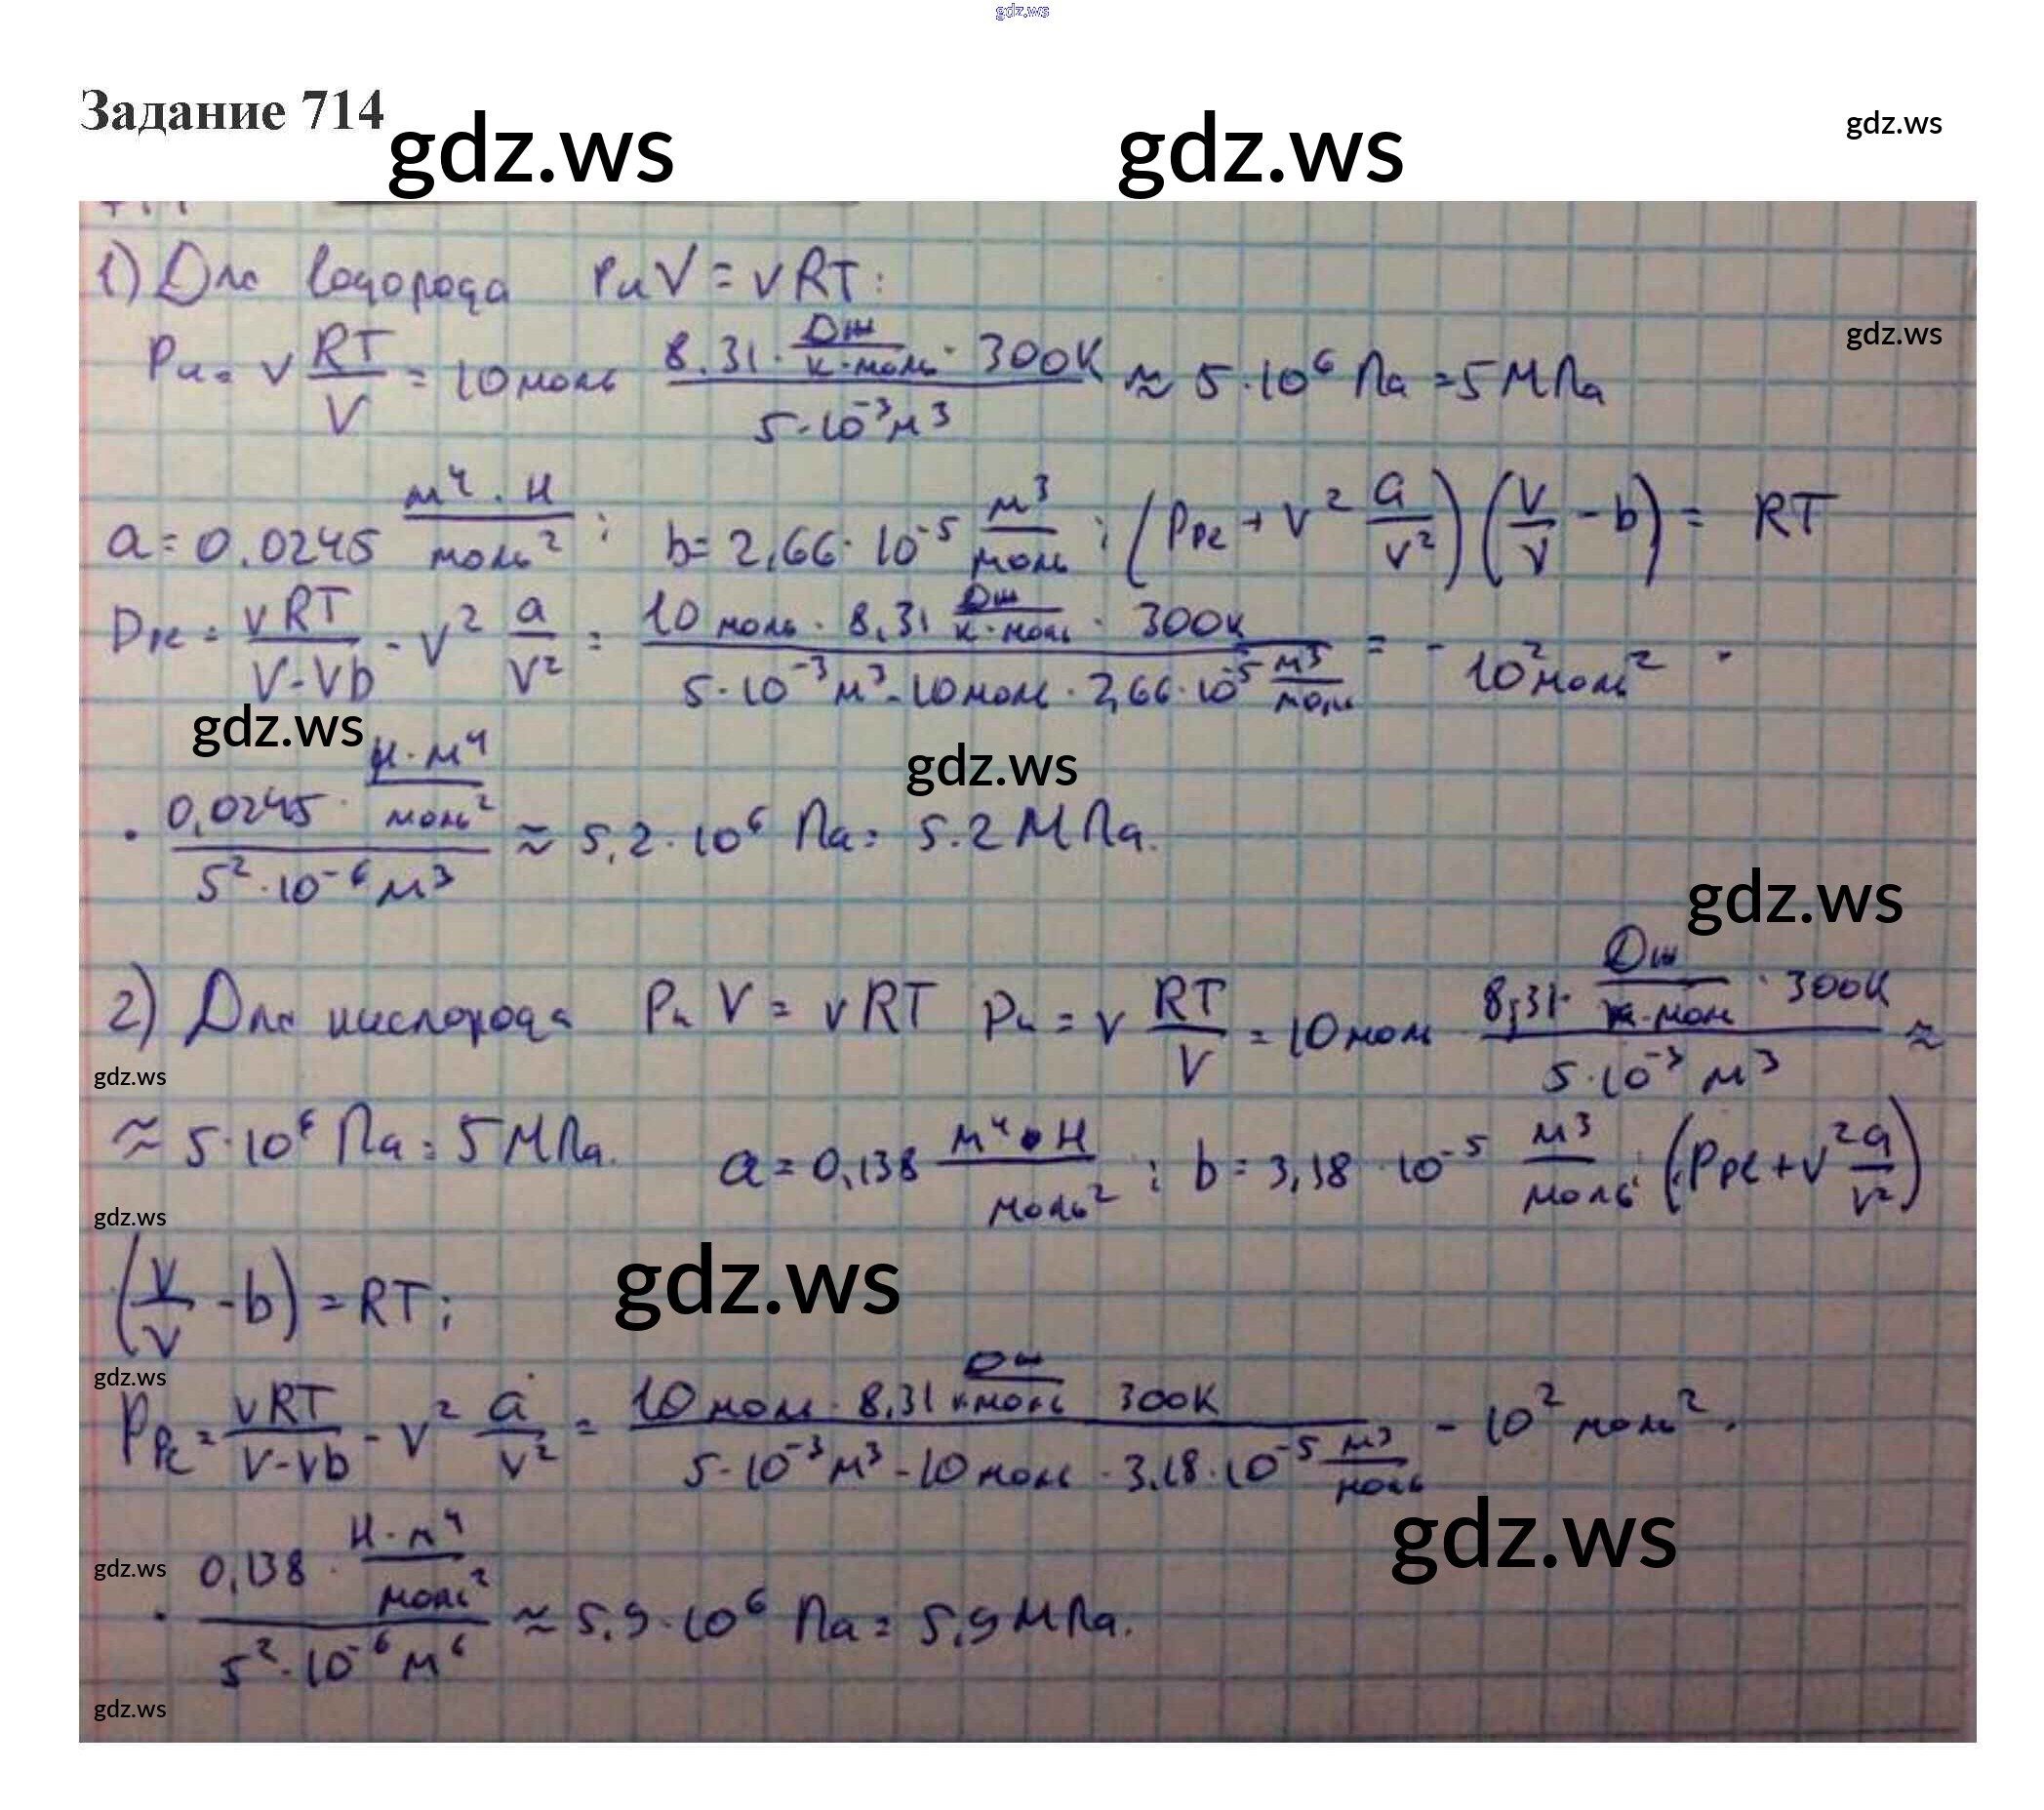 gdz.ws
Задание 714
gdz.ws gdz.ws gdz.ws
1) Для водорода PиV = νRT:
gdz.ws
Pи = ν RT/V = 10 моль 8.31 · Дж/К·моль · 300К / 5·10⁻³м³ ≈ 5·10⁶ Па = 5 МПа
a = 0.0245 м⁴·Н/моль² ; b = 2,66·10⁻⁵ м³/моль ; (Pре + ν² a/V²)(V/ν - b) = RT
Pре = νRT/V-νb - ν² a/V² = 10 моль · 8,31 Дж/К·моль · 300К / 5·10⁻³м³ - 10 моль · 2,66·10⁻⁵ м³/моль = - 10² моль² ·
gdz.ws gdz.ws
· 0,0245 · Н·м⁴/моль² / 5²·10⁻⁶ м³ ≈ 5,2·10⁶ Па = 5.2 МПа.
gdz.ws
2) Для кислорода Pи V = νRT Pи = ν RT/V = 10 моль 8,31· Дж/К·моль · 300К / 5·10⁻³ м³ ≈
gdz.ws
≈ 5·10⁶ Па = 5 МПа. a = 0,138 м⁴·Н/моль² ; b = 3,18 · 10⁻⁵ м³/моль ; (Pре + ν² a/V²)
gdz.ws
(V/ν - b) = RT;
gdz.ws
gdz.ws
Pре = νRT/V-νb - ν² a/V² = 10 моль · 8,31 Дж/К·моль 300К / 5·10⁻³м³ - 10 моль · 3,18·10⁻⁵ м³/моль - 10² моль² ·
gdz.ws
gdz.ws
· 0,138 · Н·м⁴/моль² / 5²·10⁻⁶ м⁶ ≈ 5,9·10⁶ Па = 5,9 МПа.
gdz.ws